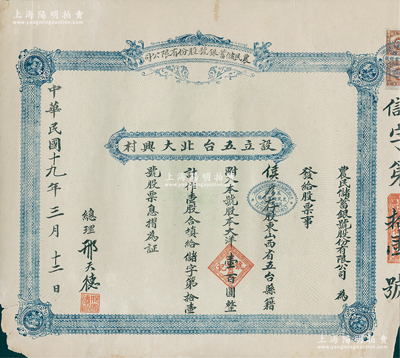 上海陽明拍賣
農民儲蓄銀號股份有限公司
設立五台北大興村
信字第拾壹號
農民儲蓄銀號股份有限公司 為
發給股票事
股東山西省五台縣籍
附入本號股本大洋壹百圓整
計壹股合填給儲字第拾壹
號股票息摺為証
總理 邢天德
中華民國十九年三月十二日